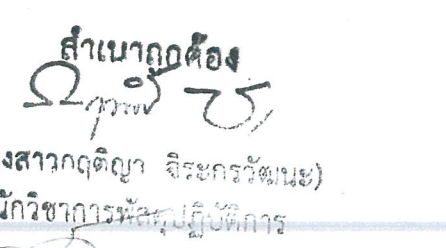 สำเนาถูกต้อง
งสาวกฤติญา จิระกรวัฒนะ)
นักวิชาการพัสดุปฏิบัติการ